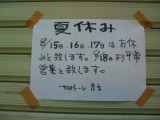 夏休み
8/15日、16日、17日はお休
みと致します。8/18日より平常
営業と致します。
店主